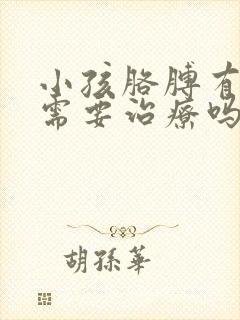 小孩胳膊有
需要治療吗
胡孫華